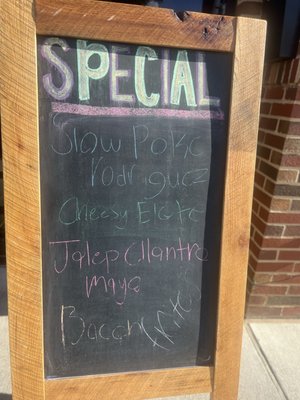 SPECIAL
Slow Poke
Rodriguez
Cheesy Elote
Jalep Cilantro
Mayo
Bacon